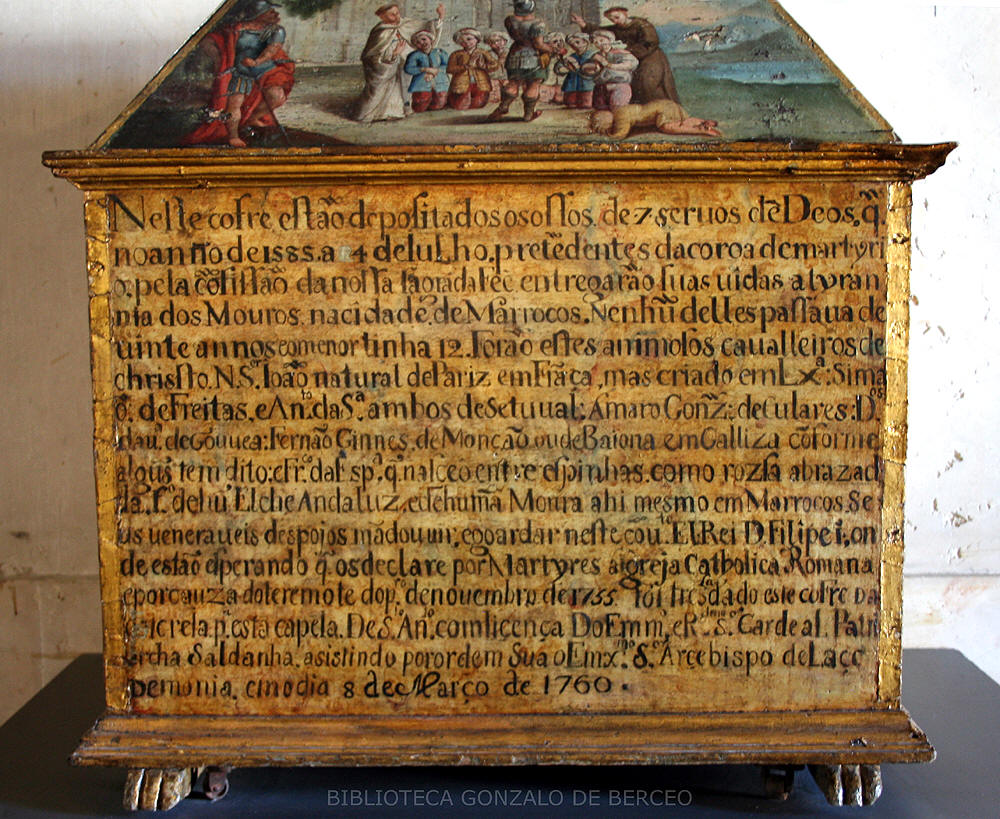 Neste cofre estão depositados os ossos, de 7 seruos dẽ Deos, q̃
no anño de 1585. a 4 de Iulho, pretẽdentes da coroa de martyri
o, pela cõfissão da nossa sagrada Feè entregarão suas uidas a tyran
nia dos Mouros, na cidade, de Marrocos. Nenhũ delles passaua de
uinte annos e o menor tinha 12. Forão estes animosos caualleiros de
christo. N.S.ͬ Ioão natural de Pariz em Frãça, mas criado em Lx.ª: Sima
õ, de Freitas, e An.ᵗᵒ da S.ª ambos de Setuual: Amaro Gonz̃: de Culares: D.ᵒˢ
dau.ͬ de Gouuea: Fernão Ginnes, de Monção ou de Baiona em Galliza cõforme
algũs tem dito: e Fr.ᶜᵒ da Esp.ª q̃ nasceo entre espinhas, como rozsa abrazad
da, F. de hũ Elche Andaluz, e de humã Moura ahi mesmo em Marrocos. Se
us ueneraueis despojos mãdou uir, e goardar neste cõu.ᵗᵒ El Rei D. Filipe 1, on
de estão esperando q̃ os declare por Martyres a igreja Catholica Romana
e por cauza do teremote do p.ͬᵒ de nouembro de 1755. foi tresladado este cofre da
p.ª esta capela. De S.ᵗᵒ An.ᵗᵒ com licença Do Em.ᵐᵒ e R.ᵐᵒ S.ᵒʳ Cardeal. Patri
ercha Saldanha, asistindo por ordem Sua o Emx.ᵐᵒ S.ᵒʳ Arcebispo de Lace
demonia, em o dia 8 de Março de 1760.
BIBLIOTECA GONZALO DE BERCEO